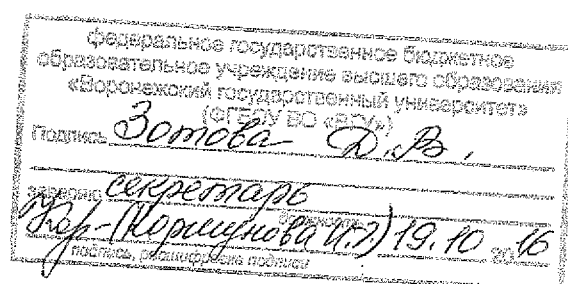 федеральное государственное бюджетное
образовательное учреждение высшего образования
«Воронежский государственный университет»
(ФГБОУ ВО «ВГУ»)
Подпись Зотова Д.В.
заверяю секретарь
должность
(Коршунова И.) 19.10 2016
подпись, расшифровка подписи